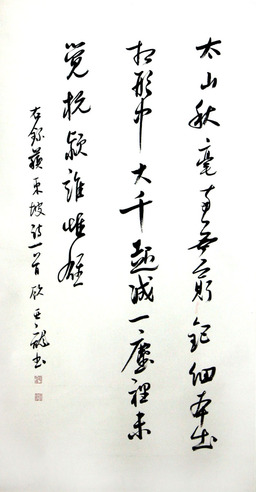 太山秋毫兩無窮鉅細本出
相形中大千起滅一塵裡未
覺杭潁誰雌雄
右錄蘇東坡詩一首